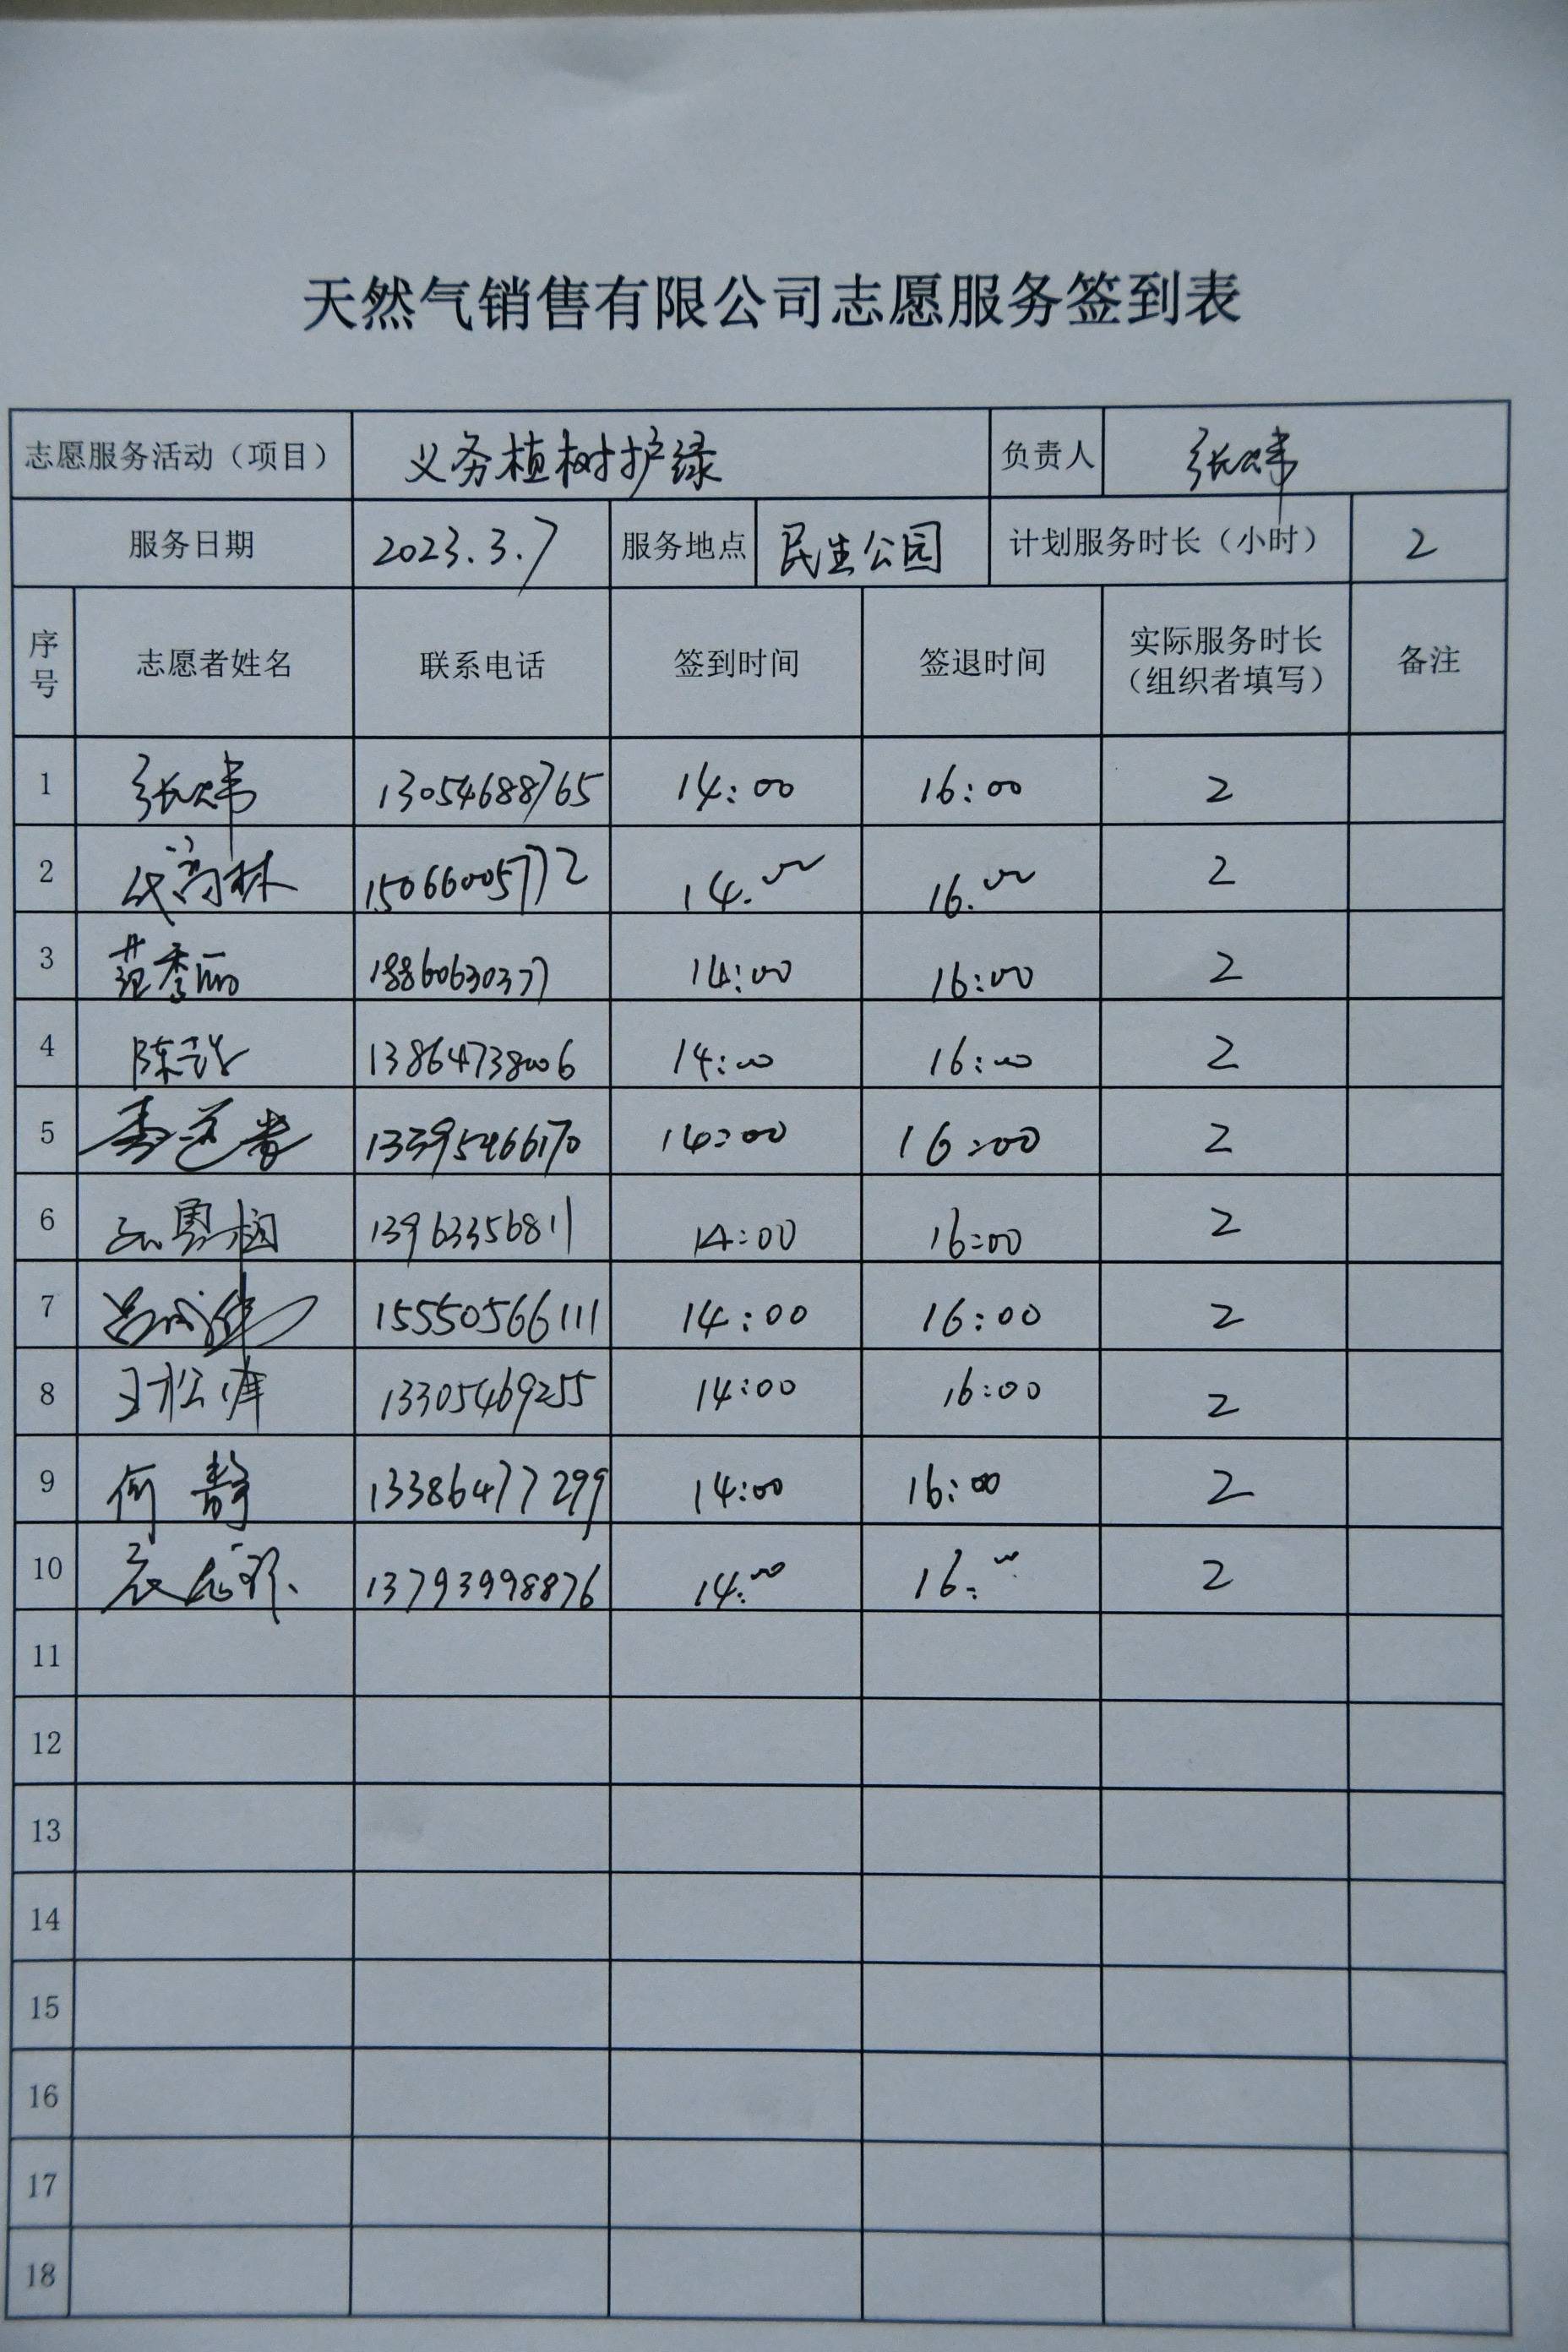 天然气销售有限公司志愿服务签到表
志愿服务活动（项目） 义务植树护绿 负责人 张炜
服务日期 2023.3.7 服务地点 民生公园 计划服务时长（小时） 2
序号 志愿者姓名 联系电话 签到时间 签退时间 实际服务时长（组织者填写） 备注
1 张炜 13054688765 14:00 16:00 2
2 代高林 15066005772 14:00 16:00 2
3 范秀丽 18860630377 14:00 16:00 2
4 陈 13864738006 14:00 16:00 2
5 13395466170 14:00 16:00 2
6 13963356811 14:00 16:00 2
7 15550566111 14:00 16:00 2
8 王松 13305469255 14:00 16:00 2
9 何静 13386477299 14:00 16:00 2
10 13793998876 14:00 16:00 2
11
12
13
14
15
16
17
18